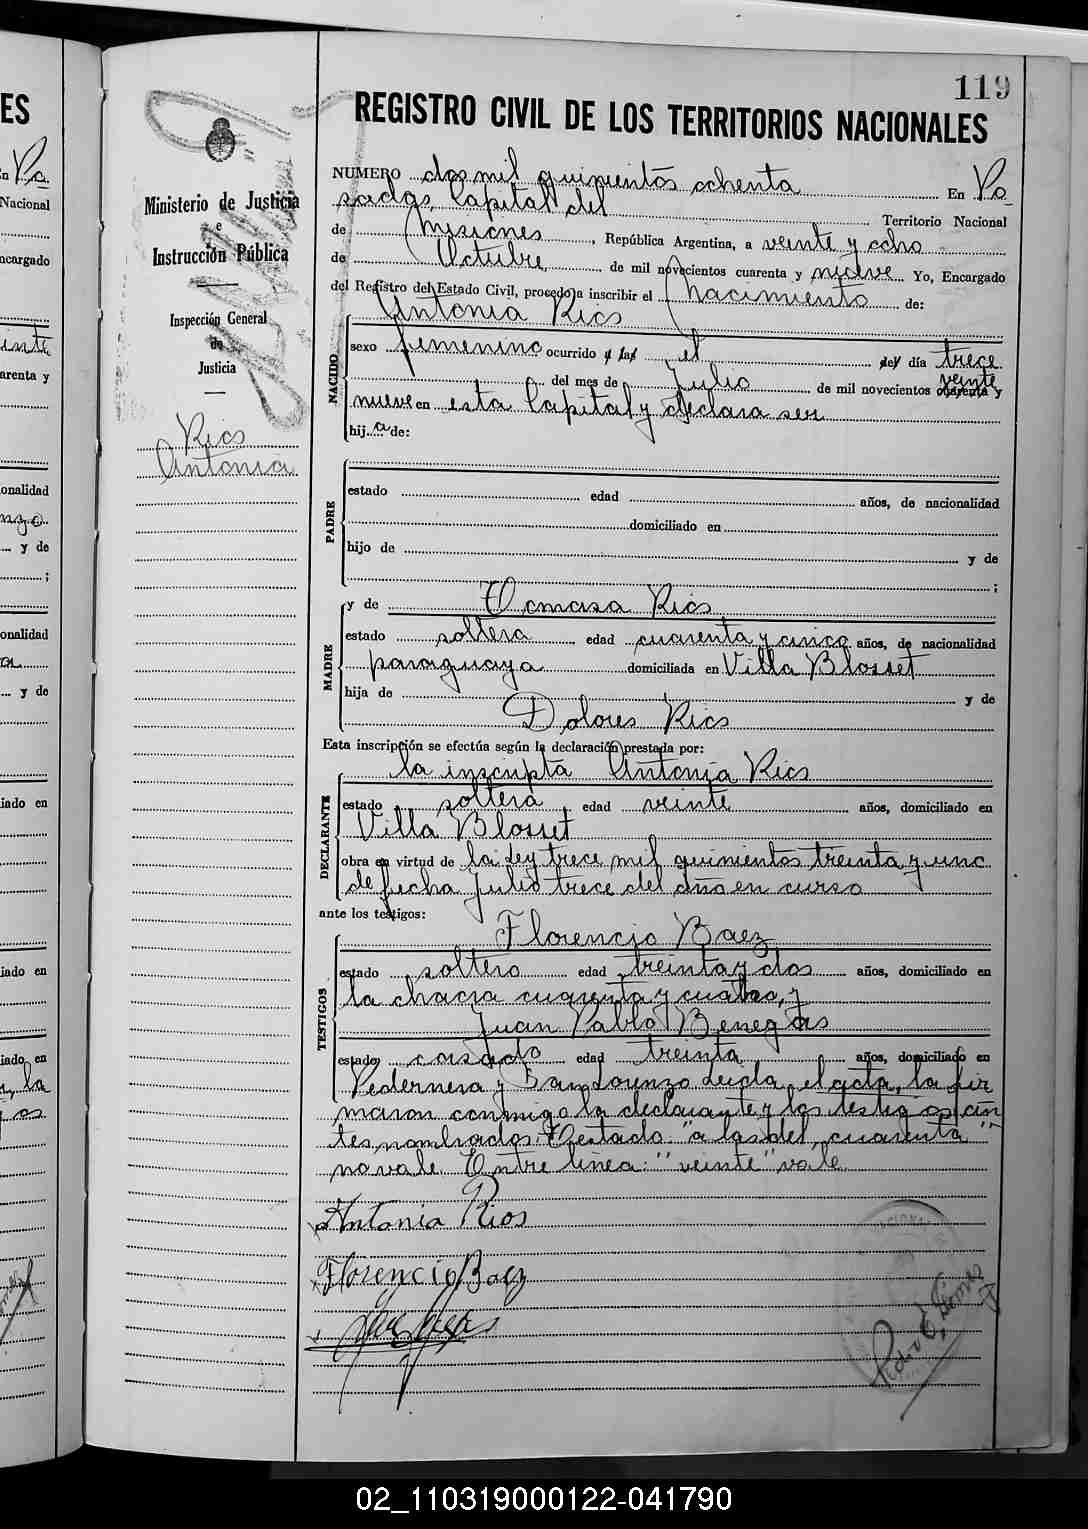 119
REGISTRO CIVIL DE LOS TERRITORIOS NACIONALES
Ministerio de Justicia
e
Instrucción Pública
Inspección General
de
Justicia
Rios
Antonia
NUMERO dos mil quinientos ochenta En Po
sadas, Capital del Territorio Nacional
de Misiones, República Argentina, a veinte y ocho
de Octubre, de mil novecientos cuarenta y nueve Yo, Encargado
del Registro del Estado Civil, procedo a inscribir el nacimiento de:
Antonia Rios
NACIDO
sexo femenino ocurrido a las el del día trece
del mes de Julio de mil novecientos cuarenta y veinte
nueve en esta Capital y declara ser
hij a de:
PADRE
estado edad años, de nacionalidad
domiciliado en
hijo de y de
;
MADRE
y de Tomasa Rios
estado soltera edad cuarenta y cinco años, de nacionalidad
paraguaya domiciliada en Villa Blosset
hija de y de
Dolores Rios
Esta inscripción se efectúa según la declaración prestada por:
la inscripta Antonia Rios
DECLARANTE
estado soltera edad veinte años, domiciliado en
Villa Blosset
obra en virtud de la Ley trece mil quinientos treinta y uno
de fecha Julio trece del año en curso
ante los testigos:
Florencio Baez
TESTIGOS
estado soltero edad treinta y dos años, domiciliado en
la chacra cuarenta y cuatro, y
Juan Pablo Benegas
estado casado edad treinta años, domiciliado en
Pedernera y San Lorenzo Leida el acta, la fir
maron conmigo la declarante y los testigos an
tes nombrados. Testado: "a las del, cuarenta"
no vale. Entre línea: "veinte" vale.
Antonia Rios
Florencio Baez
02_110319000122-041790